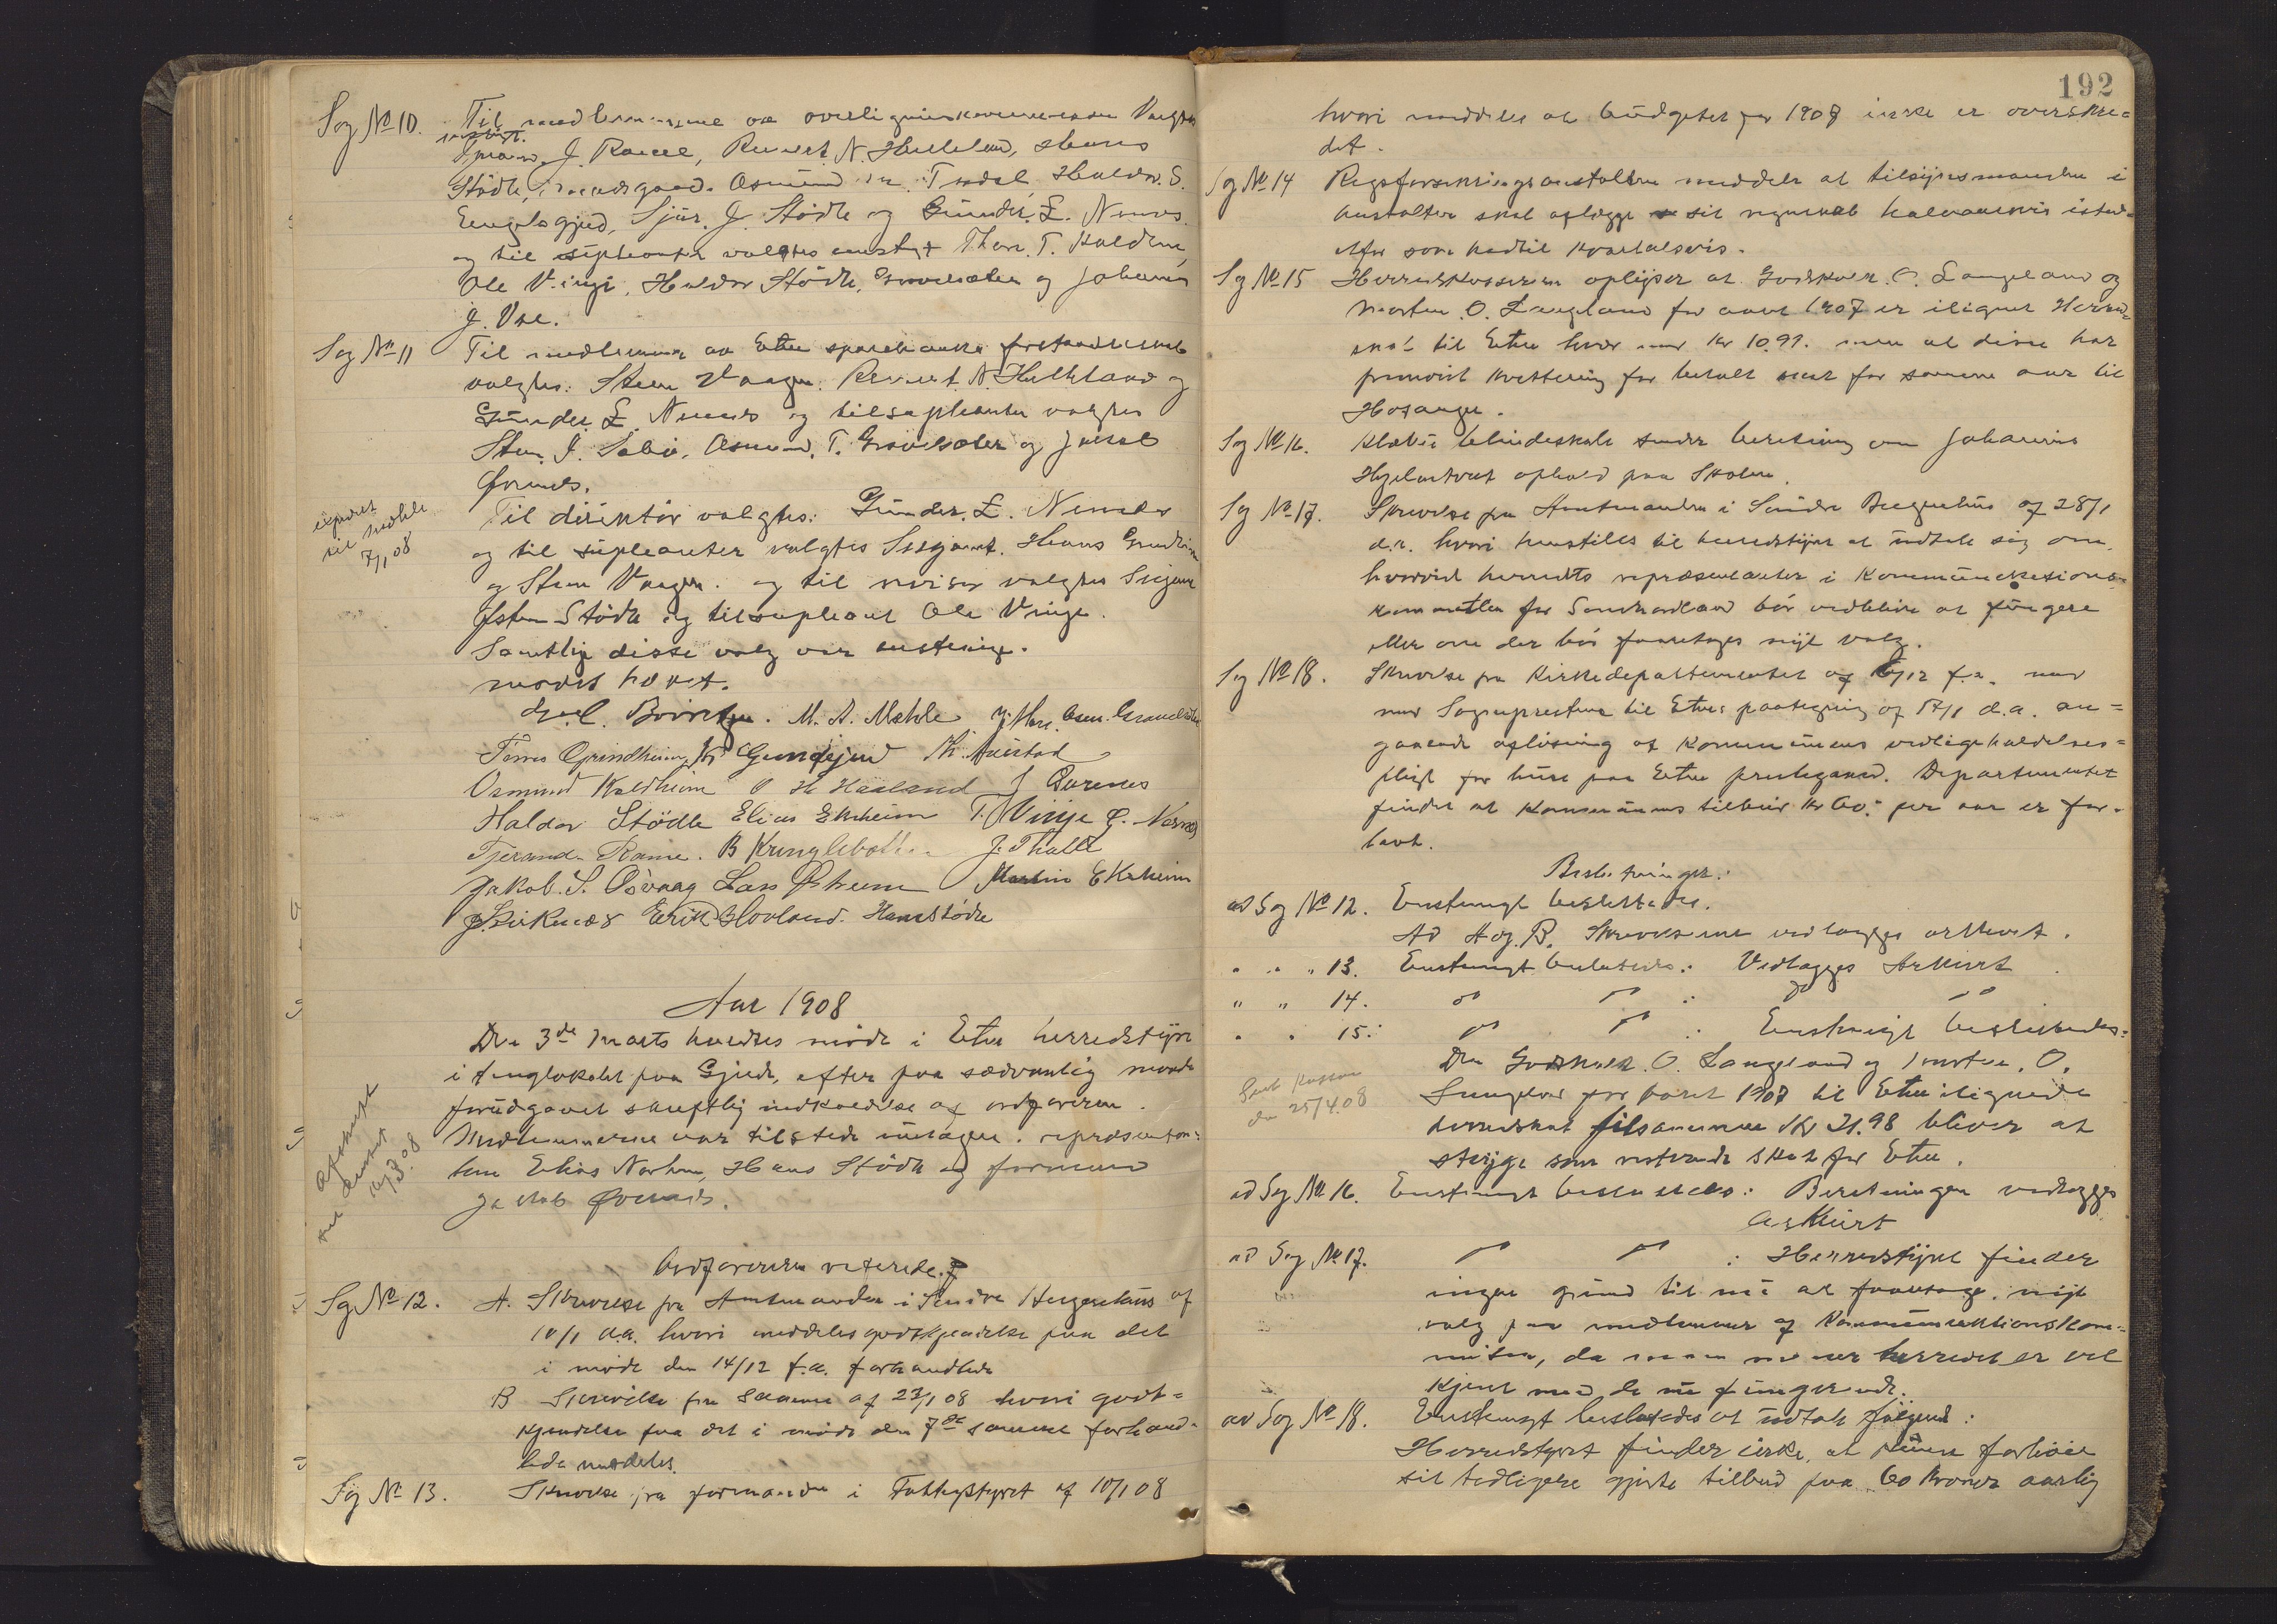 Sag No 10. Til medlemmerne av overligningskommissionen valgtes
enstemt.
J. Rame, N. Helleland, Hans
Stödle, Asmund Tvedt, Haldor. S.
Engelsgjerd, Sjur. J. Stödle og Gunder. L. Nernes
og til supleanter valgtes enstemt Thore. T. Kaldheim,
Ole Vinge, Haldor Stödle, Grovesæter og Johannes
J. Vae.
Sag No 11 Til medlemmer av Etne sparebanks forstanderskab
valgtes: Sten Vaagen. N. Helleland og
Gunder L. Nernes og til supleanter valgtes
Sten J. Sæbö, Asmund. T. Grovesæter og Jakob
Örenes.
expedert
til Mæhle
7/1 08
Til direktör valgtes: Gunder. L. Nernes
og til supleanter valgtes Hans Grindheim
og Sten Vaagen. og til revisor valgtes
Östen Stödle og til supleant Ole Vinge.
Samtlige disse valg var enstemig.
mödet hævet.
M. A. Mæhle
Törres Grindheim
Osmund Kaldheim O H Haaland
Haldor Stödle Elias Ekrheim T. Vinje G. Nernes
Tjerand. Rame. B Kringlebotten
Jakob. S. Osvaag Lars Martin Ekrheim
Erik Hovland. Hans Stödle
Aar 1908
Den 3de Marts holdtes möde i Etne herredstyre
i tinglokalet paa Gjerde, efter paa sædvanlig maade
forudgaaet skriftlig indkaldelse af ordföreren.
Medlemmerne var tilstede untagen. repræsentan-
terne Elias Hans Stödle og formand
Jakob Örenes.
Afskrift
16/3 08
Ordföreren refererede:
Sag No 12. A. Skrivelse fra Amtmanden i Söndre Bergenhus af
10/1 d.a. hvori meddeles godkjendelse paa det
i möde den 14/12 f.a. forhandlede
B Skrivelse fra Samme af 23/1 08 hvori godt-
kjendelse paa det i möde den 7de samme forhand-
lede meddeles.
Sag No 13. Skrivelse fra formanden i Fattigstyret af 10/1 08
192
hvori meddeles at budgetet for 1907 ikke er overskre-
det.
Sag No 14 Rigsforsikringsanstalten meddeler at tilsynsmanden i
Anstalten skal aflægge sit regnskab halvaarsvis isted-
etfor som hidtil kvartalsvis.
Sag No 15 Herredskassereren oplyser at Godskalk. O. Langeland og
Morten. O. Langeland for aaret 1907 er ilignet Herred-
skat til Etne hver med Kr 10.99. men at disse har
fremvist kvittering for betalt skat for samme aar til
Hosanger.
Sag No 16. Klæbu blindeskole sender beretning om Johannes
Hjelmtveit ophold paa Skolen.
Sag No 17. Skrivelse fra Amtmanden i Söndre Bergenhus af 28/1
d.a. hvori henstilles til herredstyret at udtale sig om,
hvorvidt herredets repræsentanter i Kommunikations-
kommitteen for Söndhordland bör vedblive at fungere
eller om der bör foretages nyt valg.
Sag No 18. Skrivelse fra Kirkedepartementet af 6/12 f.a. med
med Sogneprestens til Etnes paategning af 17/1 d.a. an-
gaaende aflösning af Kommunens vedligeholdelses-
pligt for huse paa Etne prestegaard. Departementet
finder at Kommunens tilbud Kr 60.- per aar er for
lavt.
Beslutninger:
ad Sag No 12. Enstemigt besluttedes.
Ad A og. B. Skrivelserne vedlægges arkivet.
" " " 13. Enstemigt besluttedes: Vedlægges Arkivet
" " 14. do do : do do
" " 15: do do : Enstemigt besluttedes:
Sent Kassen
den 25/4.08
Den Godskalk. O. Langeland og Morten. O.
Langeland for aaret 1907 til Etne ilignede
herredskat tilsammen Kr 21.98 bliver at
stryge som resterende skat for Etne.
ad Sag No 16. Enstemigt besluttedes: Beretningen vedlægges
Arkivet
ad Sag No 17. do do : Herredstyret finder
ingen grund til nu at foretage. nyt
valg paa medlemmer af Kommunikationskom-
miteen, da man mener herredet er vel
tjent med de nu fungerende.
ad Sag No 18. Enstemigt besluttedes at udtale fölgende:
Herredstyret finder ikke, at kunne forhöie
sit tidligere gjorte tilbud paa 60 kroner aarlig